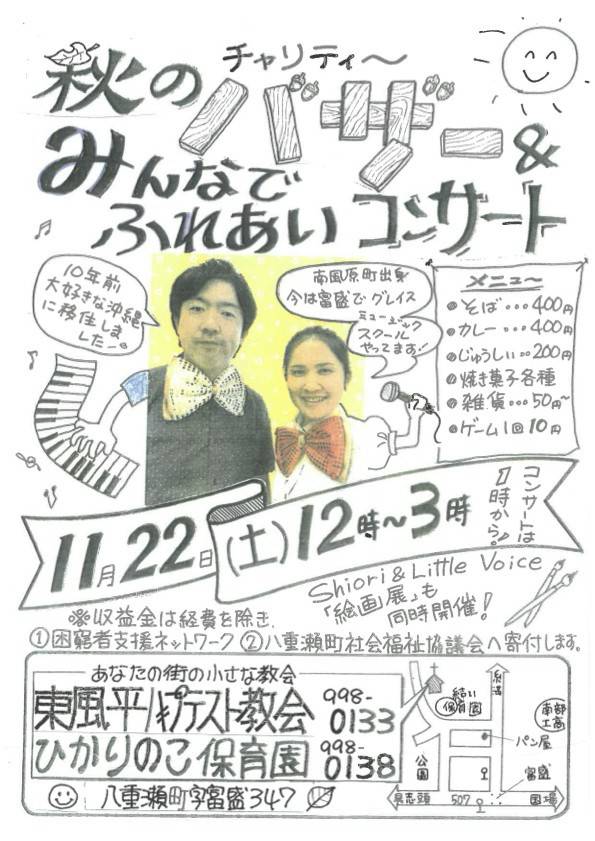 チャリティ～
秋のバザー&
みんなで
ふれあいコンサート
10年前
大好きな沖縄
に移住しま
した～。
南風原町出身
今は富盛でグレイス
ミュージック
スクール
やってます!
メニュー
●そば・・・400円
●カレー・・・400円
●じゅうしぃ・・・200円
●焼き菓子各種
●雑貨・・・50円～
●ゲーム1回10円
11月22日(土)12時～3時
コンサートは
1時から♪
Shiori & Little Voice
「絵画」展も
同時開催!
※収益金は経費を除き、
①困窮者支援ネットワーク ②八重瀬町社会福祉協議会へ寄付します。
あなたの街の小さな教会
東風平バプテスト教会 998-0133
ひかりのこ保育園 998-0138
八重瀬町字富盛347
糸満
結い
保育園
南部
工高
パン屋
公園
富盛
具志頭 507 国場